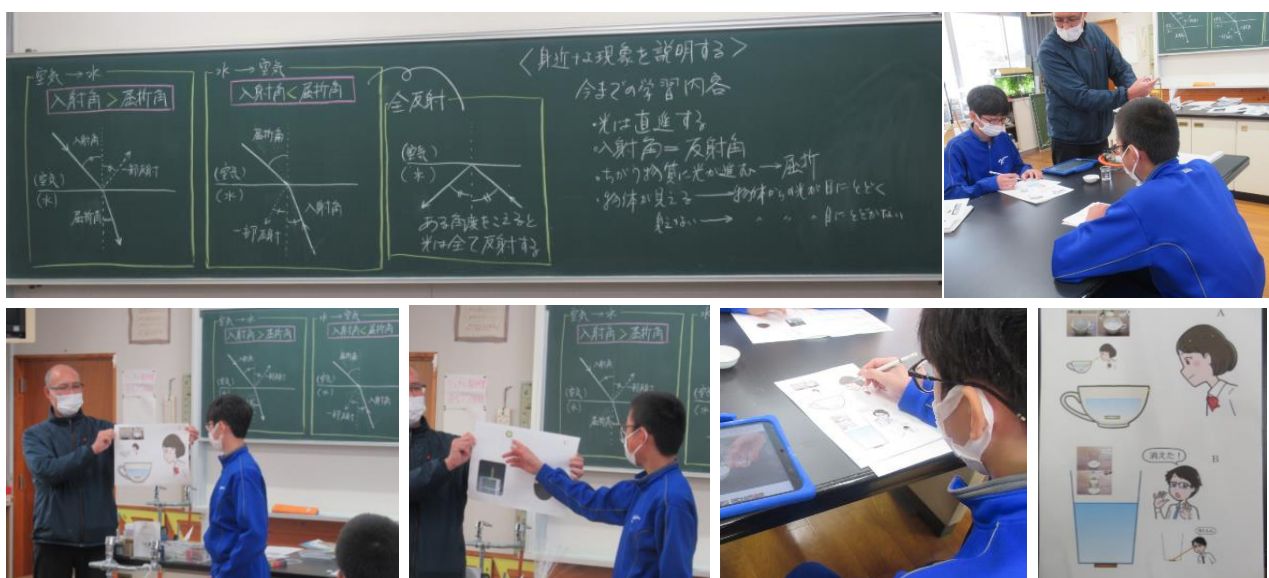 空気→水
入射角>屈折角
入射角
一部反射
(空気)
(水)
屈折角
水→空気
入射角<屈折角
屈折角
(空気)
(水)
入射角
一部反射
全反射
(空気)
(水)
ある角度をこえると
光は全て反射する
<身近な現象を説明する>
今までの学習内容
・光は直進する
・入射角=反射角
・ちがう物質に光が進む→屈折
・物体が見える→物体からの光が目にとどく
見えない→〃 〃 〃 目にとどかない
空気→水
入射角>屈折角
入射角
一部反射
(空気)
(水)
屈折角
水→空気
入射角<屈折角
屈折角
(空気)
(水)
入射角>屈折角
入射角
(空気)
(水)
屈折角
A
B
消えた!